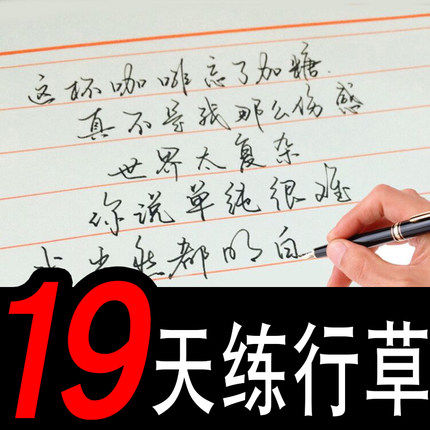 这杯咖啡忘了加糖.
真不是我那么伤感
世界太复杂
你说单纯很难
当然都明白
19天练行草